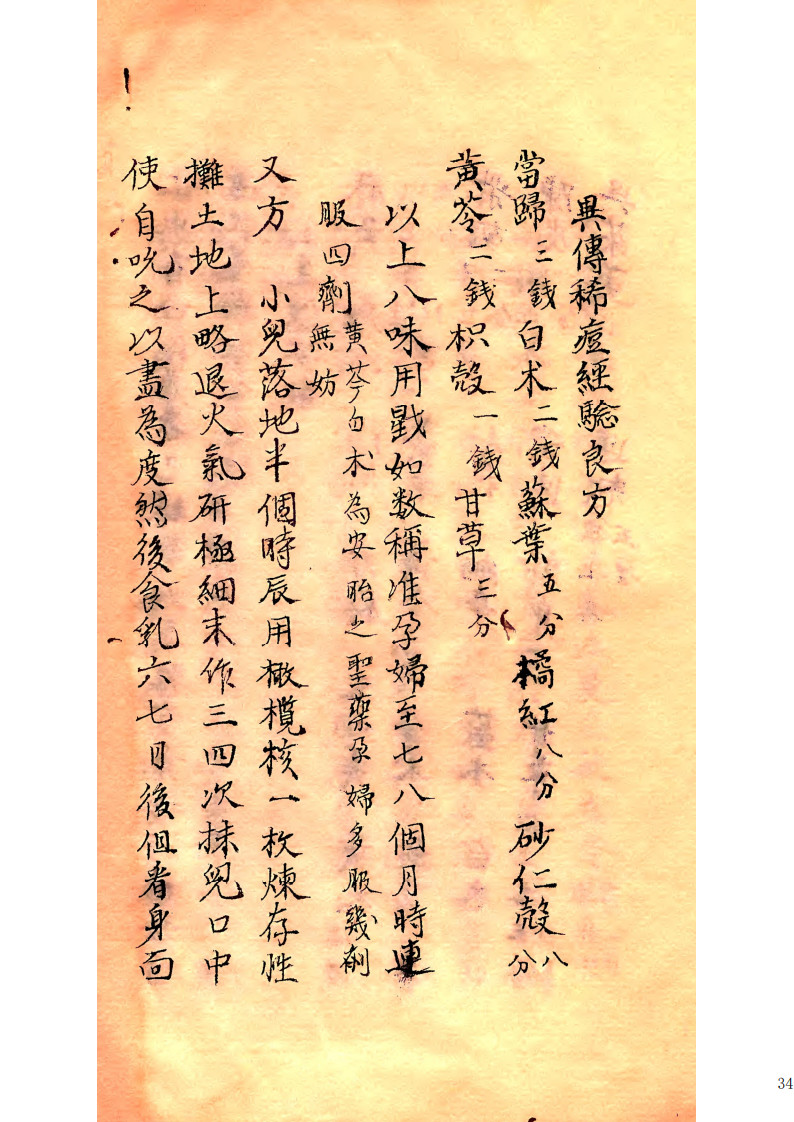 異傳稀痘經驗良方
當歸三錢白术二錢蘇葉五分橘紅八分砂仁殼八分
黃芩二錢枳殼一錢甘草三分
以上八味用戥如数稱准孕婦至七八個月時連
服四劑黄芩白术為安胎之聖藥孕婦多服幾劑無妨
又方 小兒落地半個時辰用橄欖核一枚煉存性
攤土地上略退火氣研極細末作三四次抹兒口中
使自吮之以盡為度然後食乳六七日後但看身面
34